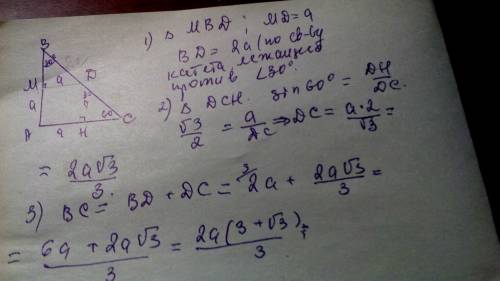 B
30°
M
a
D
a
A
a
H
60°
C
1) Δ MBD; MD = a
BD = 2a (по св-ву
катета, лежащего
против ∠30°.
2) Δ DCH. sin 60° = DH/DC.
√3/2 = a/DC ⇒ DC = a·2/√3 =
= 2a√3/3.
3) BC = BD + DC = 2a + 2a√3/3 =
= 6a + 2a√3/3 = 2a(3 + √3)/3